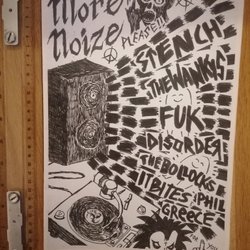 More
Noize
PLEASE!!!
STENCH
THE WANKYS
FUK
DISORDER
THE BOLLOCKS
IT BITES PHIL
GREECE